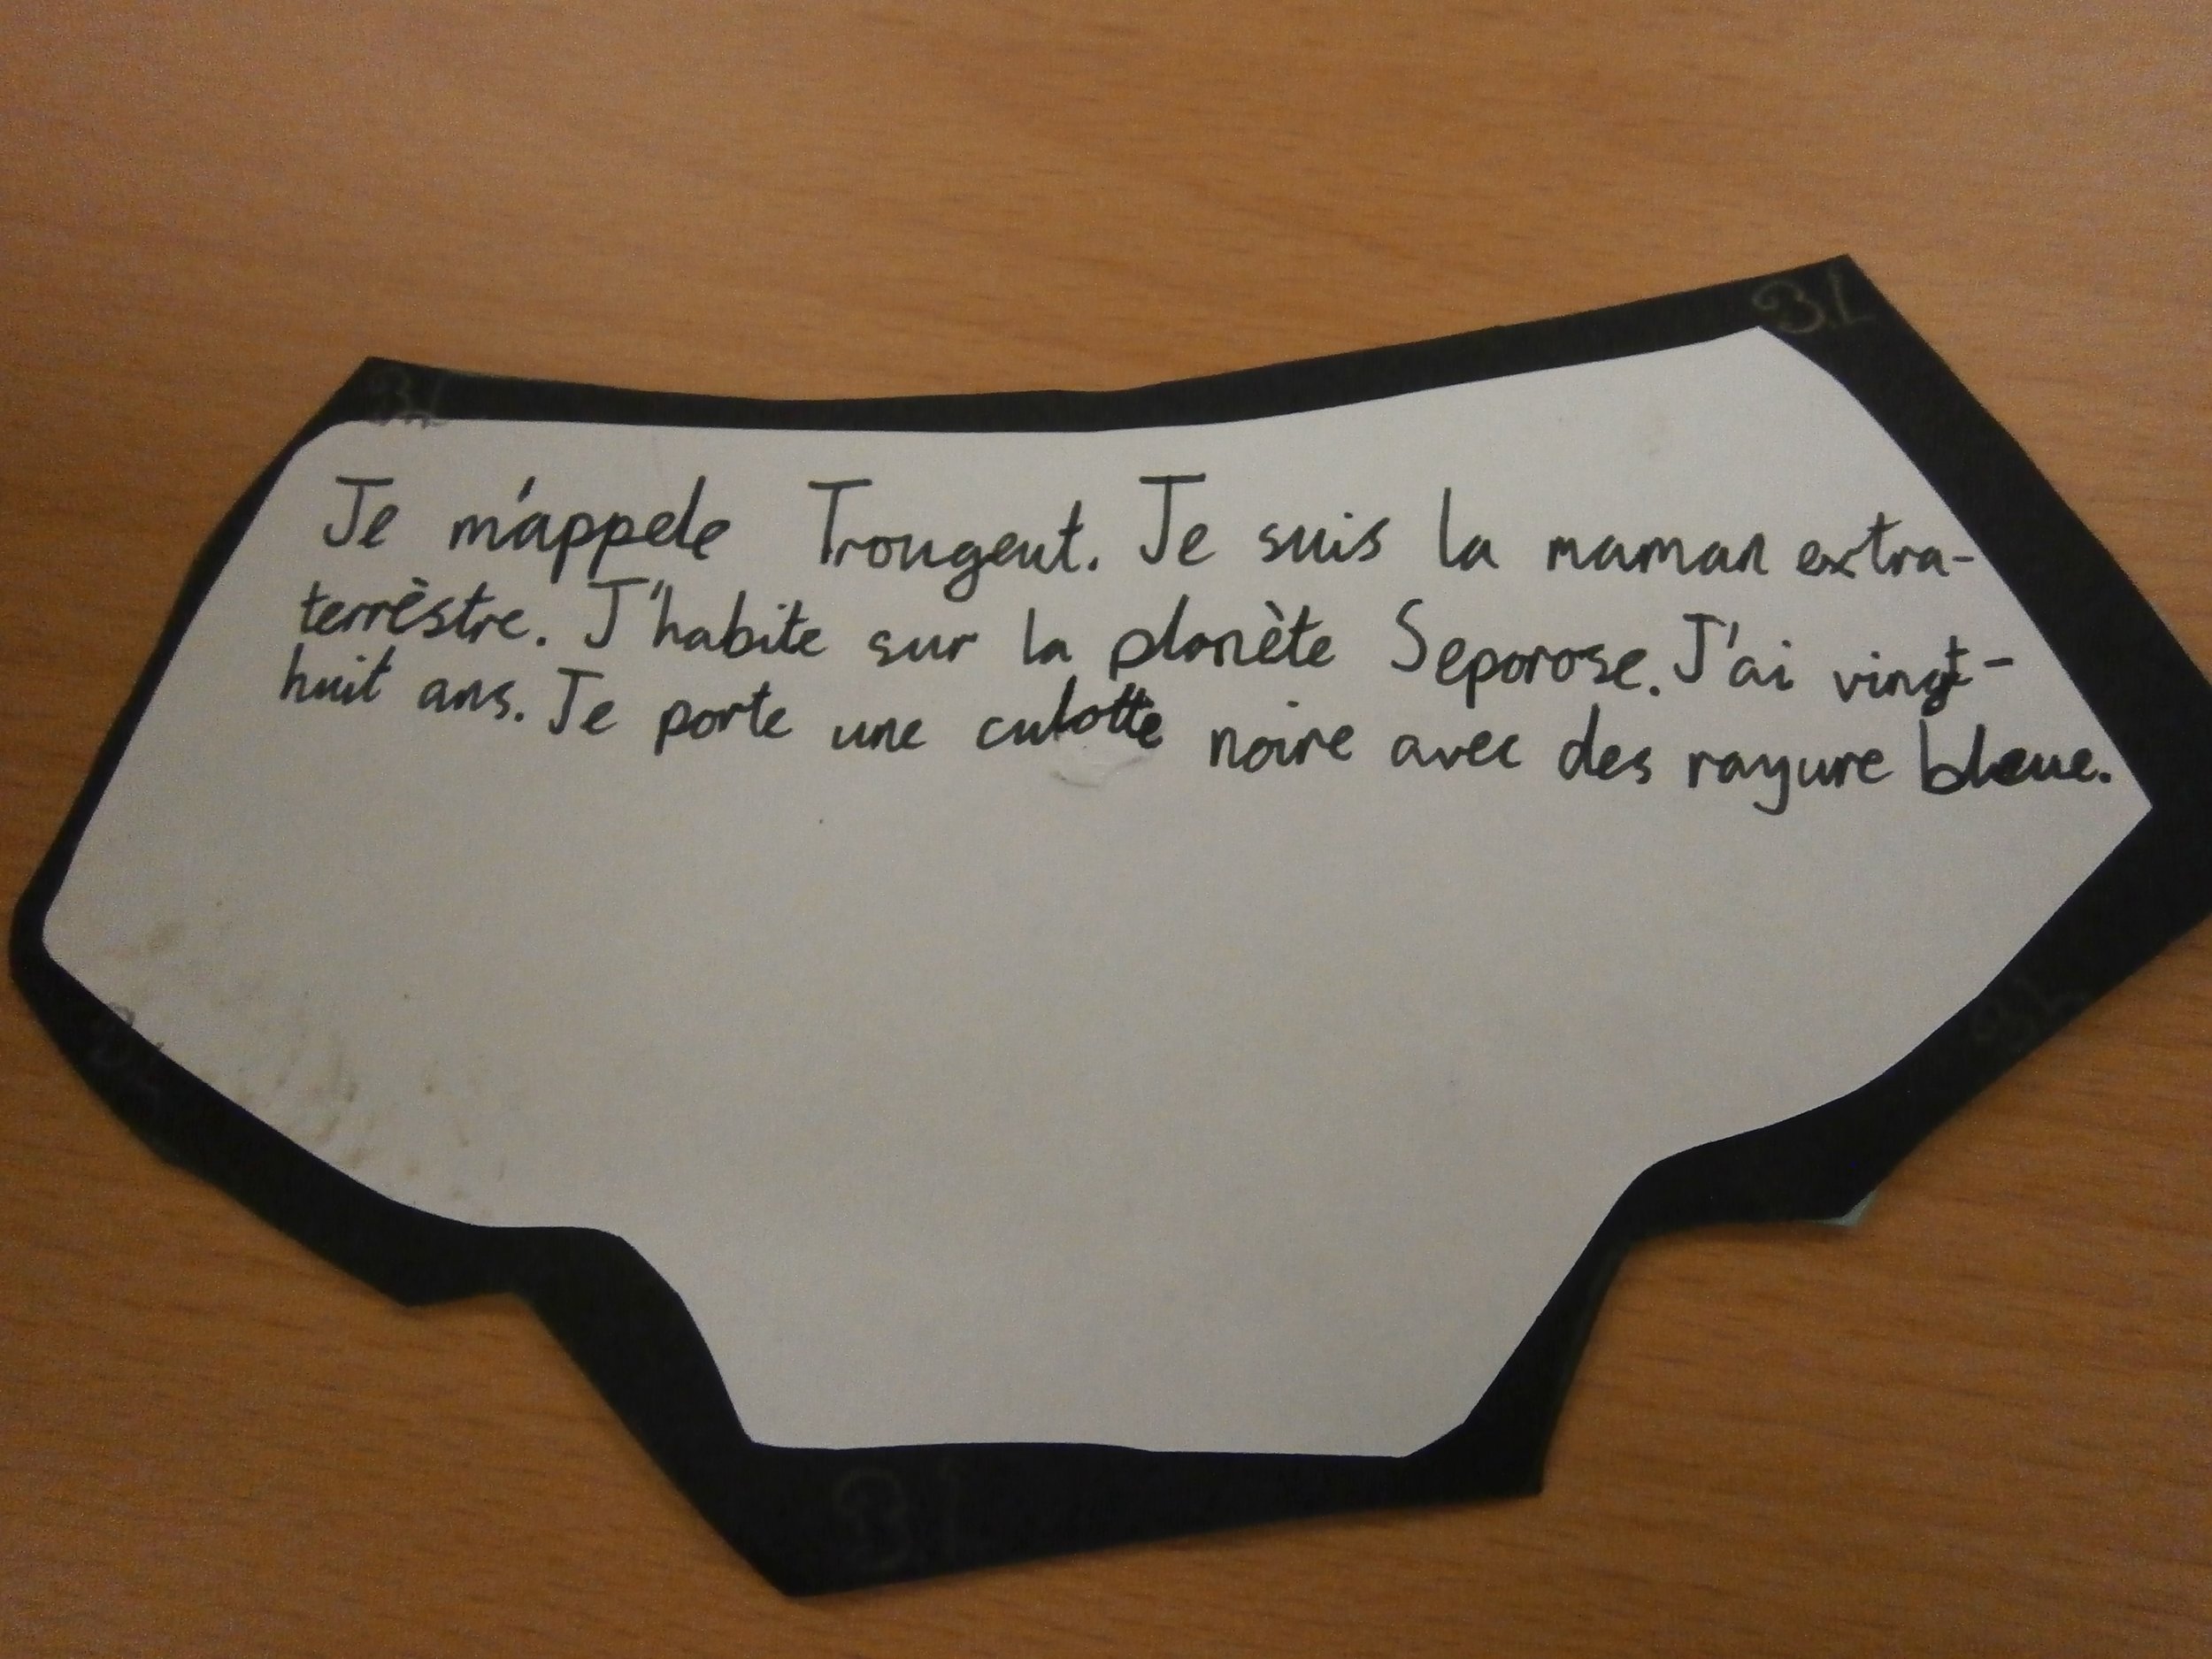 Je m'appele Trougeut. Je suis la maman extra-
terrèstre. J'habite sur la planète Seporose. J'ai vingt-
huit ans. Je porte une culotte noire avec des rayure bleue.
3L
3L
3L
3L